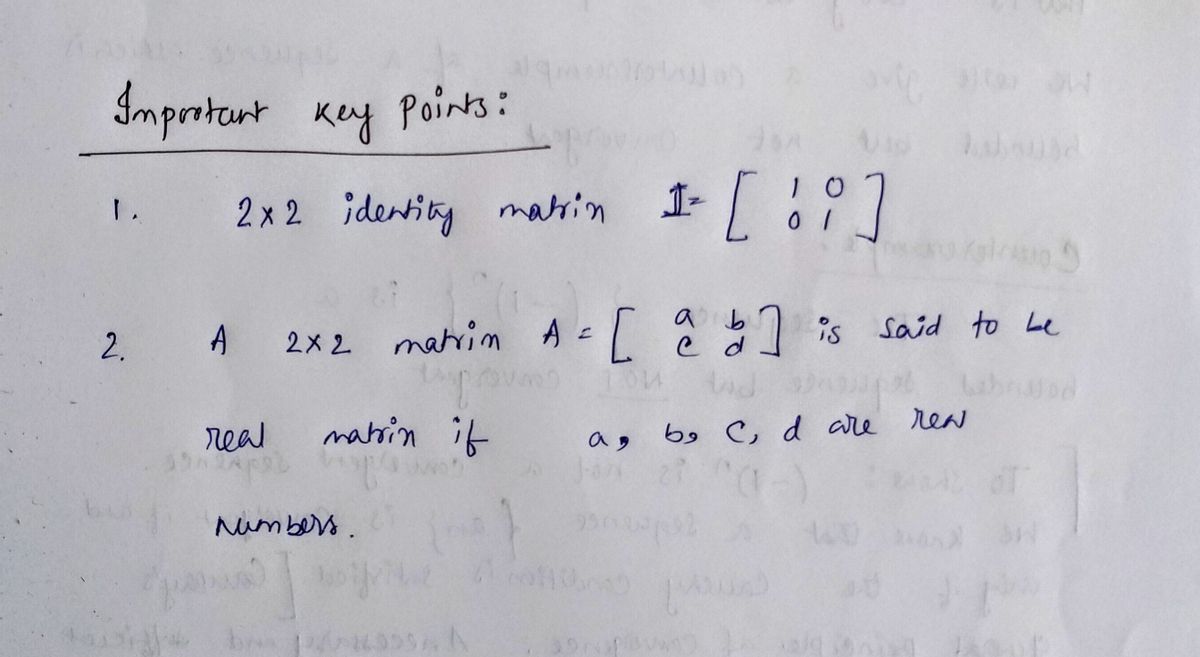 Important key points:
1. 2x2 identity matrix I = [ 1 0 0 1 ]
2. A 2x2 matrix A = [ a b c d ] is said to be
real matrix if a, b, c, d are real
numbers.